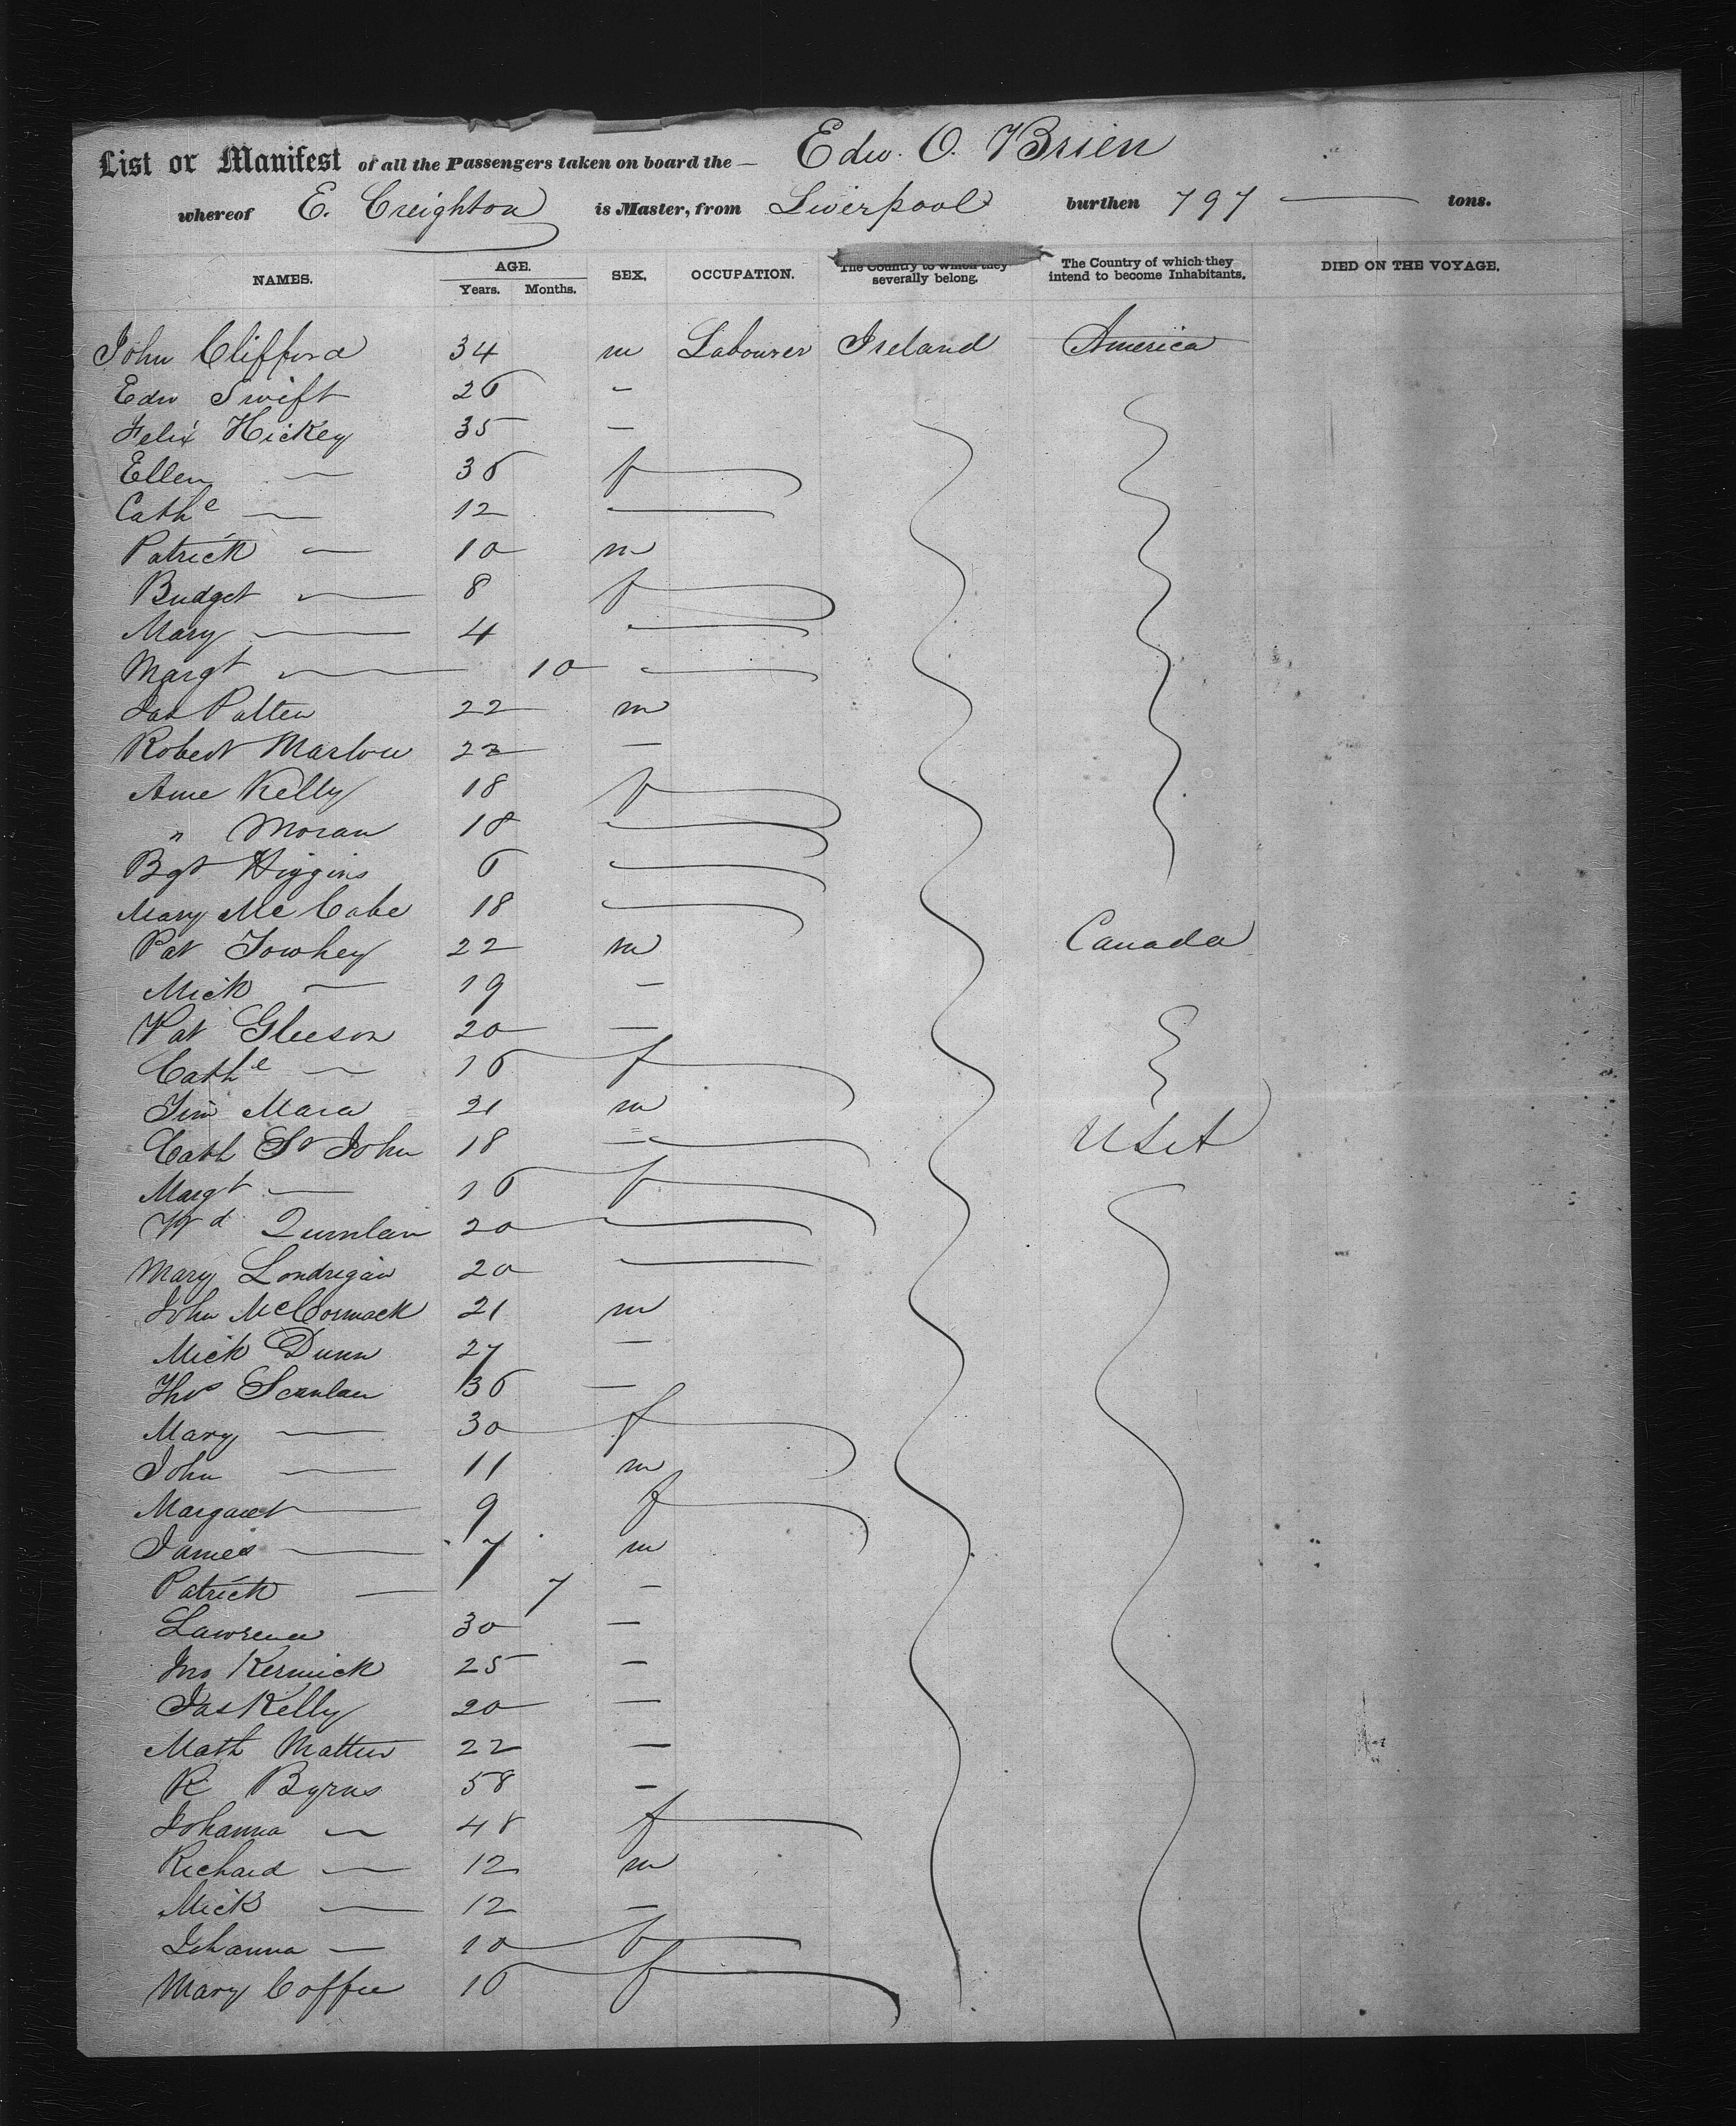 List or Manifest of all the Passengers taken on board the — Edw. O. Brien
whereof E. Creighton is Master, from Liverpool burthen 797 — tons.
NAMES. AGE. Years. Months. SEX. OCCUPATION. The Country to which they severally belong. The Country of which they intend to become Inhabitants. DIED ON THE VOYAGE.
John Clifford 34 m Labourer Ireland America
Edw Swift 26 -
Felix Hickey 35 -
Ellen — 36 f
Cathe — 12 —
Patrick — 10 m
Budget — 8 f
Mary — 4 —
Margt — 10 —
Jas Patten 22 m
Robert Marlow 22 —
Anne Kelly 18 f
" Moran 18 —
Bgt Higgins 6 —
Mary McCabe 18 —
Pat Towhey 22 m Canada
Mick — 19 -
Pat Gleeson 20 —
Cathe — 16 f
Tim Mara 21 m
Cath St John 18 — USA
Margt — 16 f
Wd Quinlan 20 —
Mary Londrigan 20 —
John McCormack 21 m
Mick Dunn 27 —
Thos Scanlan 36 —
Mary — 30 f
John — 11 m
Margaret — 9 f
James — 7 m
Patrick — 7 -
Lawrence 30 —
Jno Kerwick 25 -
Jas Kelly 20 —
Math Matten 22 —
R Byrns 58 -
Johanna — 48 f
Richard — 12 m
Mick — 12 —
Johanna — 10 f
Mary Coffee 16 f